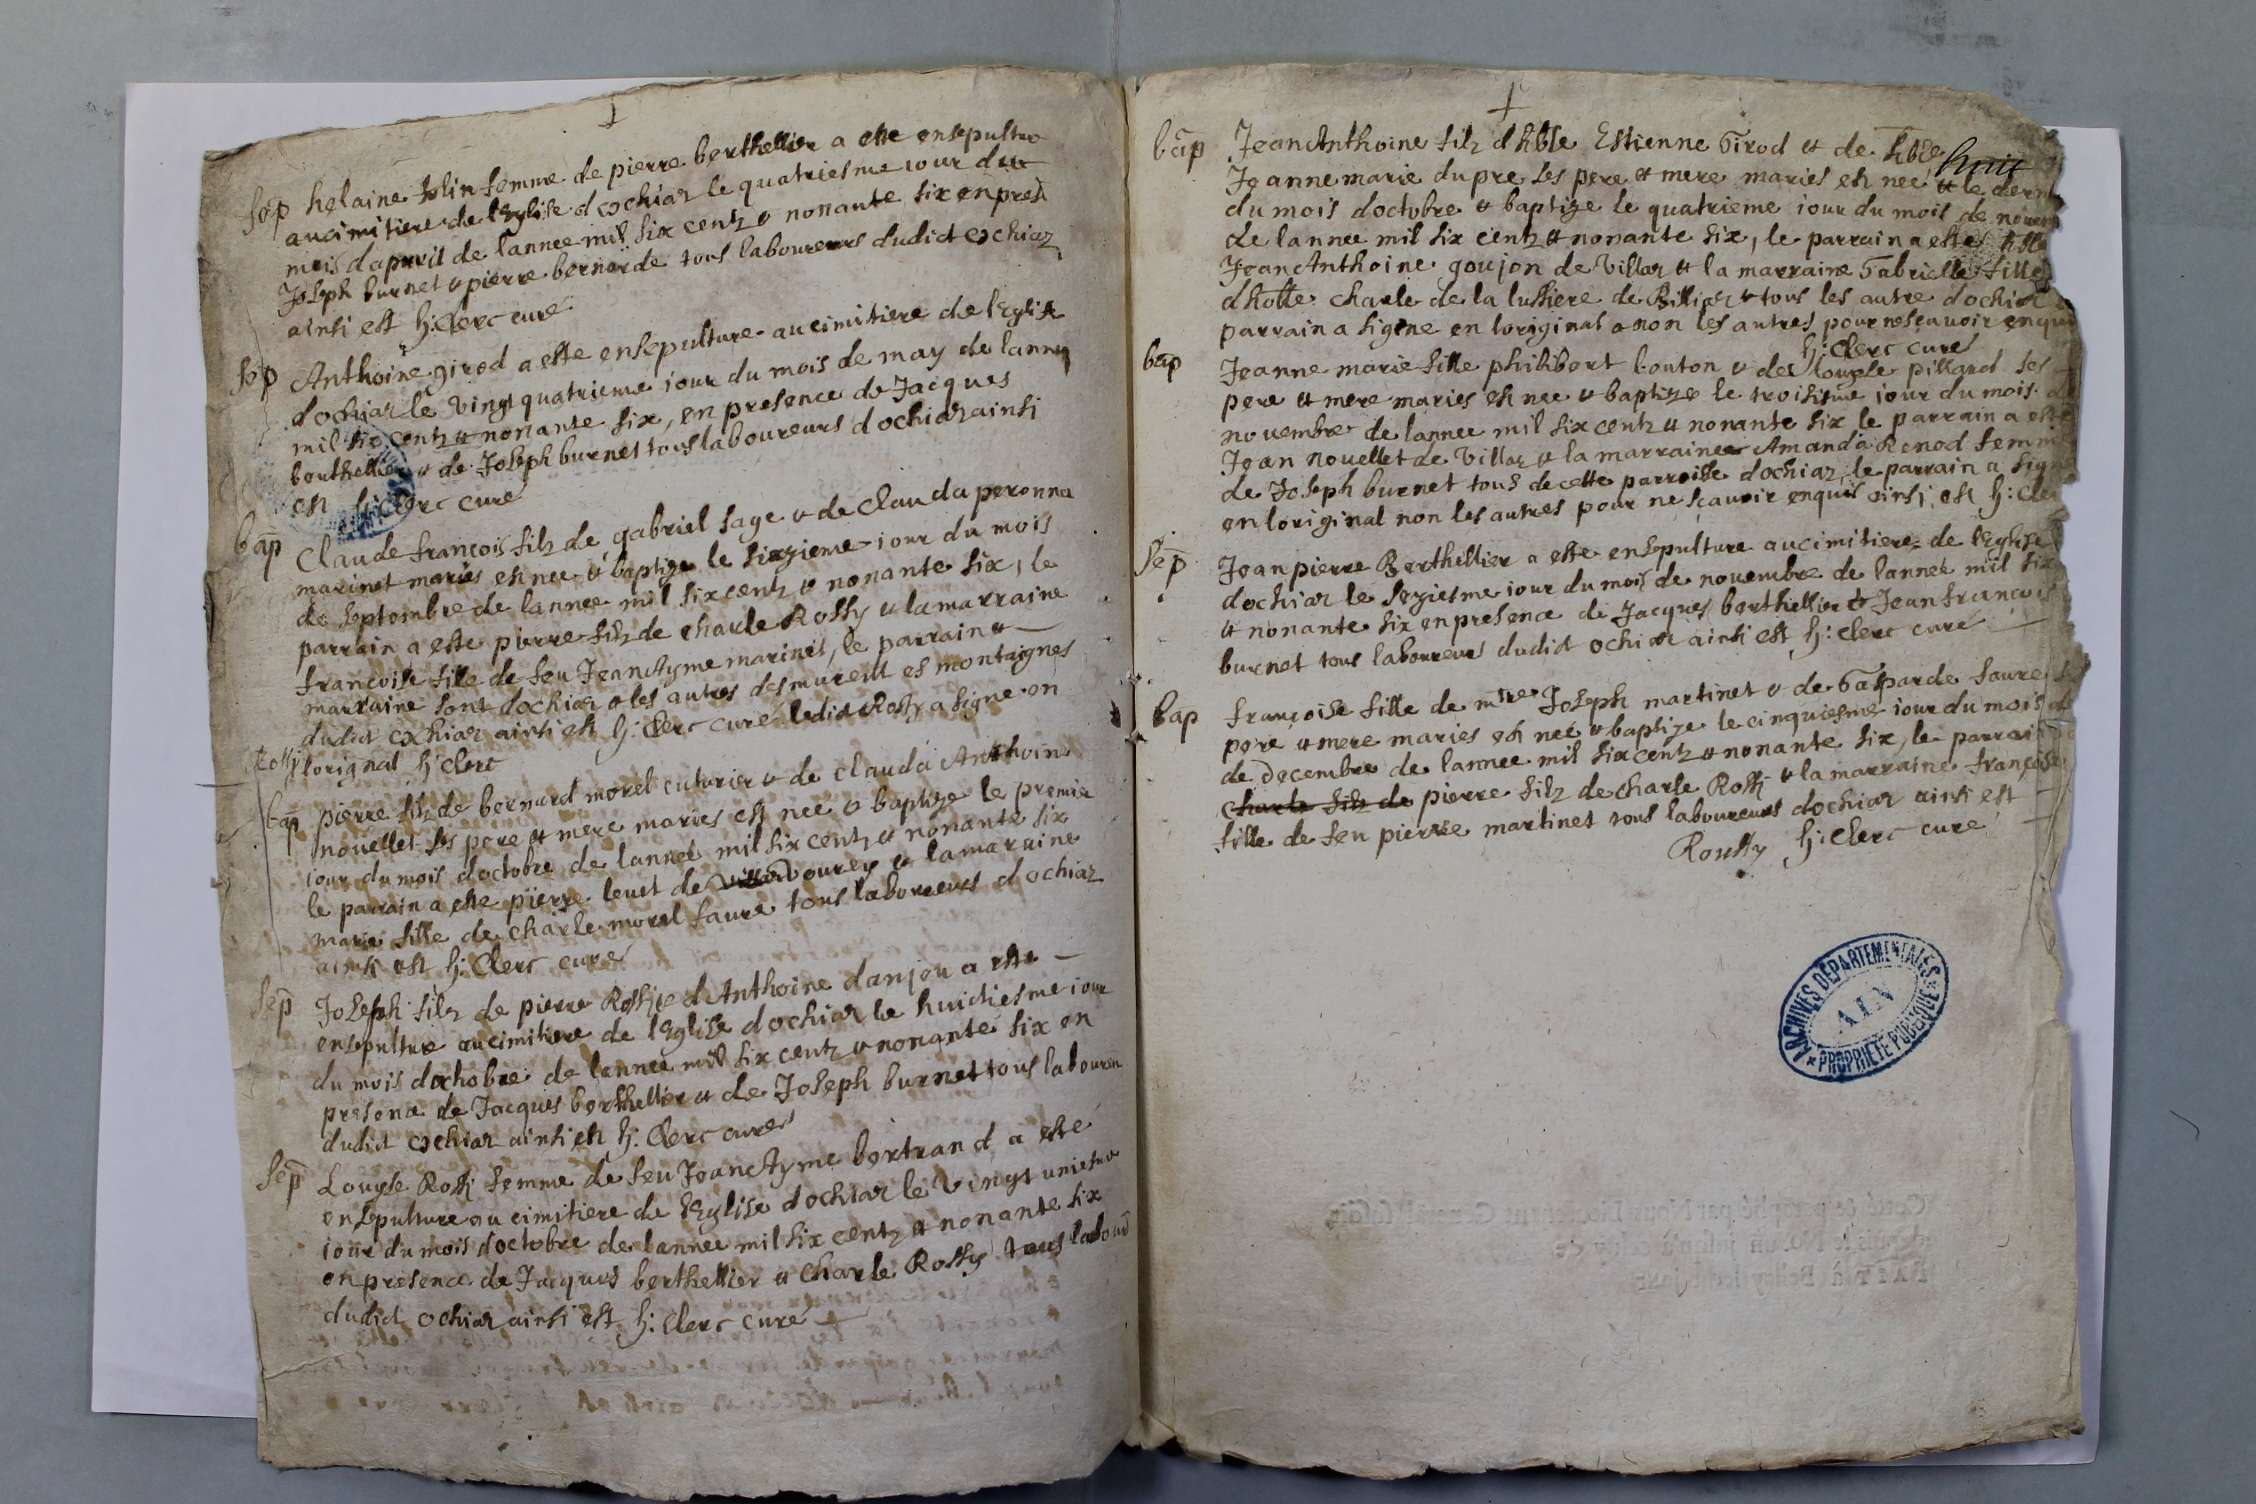 sep helaine Jolin femme de pierre berthellier a este ensepultur
au cimitiere de l'Eglise dochiaz le quatriesme iour du
mois dapuril de lannee mil six centz & nonante six en pres
Joseph burnet & pierre bernarde tous laboureurs dudict ochiaz
ainsi est h: Clerc curé
sep Anthoine girod a este ensepulture au cimitiere de l'Eglise
dochiaz le vingt quatrieme iour du mois de may de lannee
mil six centz & nonante six, en presence de Jacques
berthellier & de Joseph burnet tous laboureurs dochiaz ainsi
est h: Clerc curé
bap Claude françois filz de gabriel sage & de Clauda peronna
marinet mariés est nee & baptize le sixzieme iour du mois
de septembre de lannee mil six centz & nonante six, le
parrain a este pierre filz de charle Rossy & la marraine
françoise fille de feu Jean Ayme marinet, le parrain &
marraine sont dochiaz & les autres desmurent es montaignes
dudict ochiaz ainsi est h: Clerc curé ledict Rossy a signe en
Rossy lorignal h: Clerc
bap pierre filz de bernard morel cuturier & de clauda Anthoin
nouellet ses pere & mere maries est nee & baptize le premier
iour du mois doctobre de lannee mil six centz & nonante six
le parrain a este pierre louet de vourey & la maraine
marie fille de charle morel faure tous laboureurs dochiaz
ainsi est h: Clerc curé
sep Joseph filz de pierre Rossy d Anthoine danjou a este
ensepulture au cimitiere de l'Eglise dochiaz le huictiesme iour
du mois dochobre de lannee mil six centz & nonante six en
presence de Jacques berthellier & de Joseph burnet tous laboureu
dudict ochiaz ainsi est h: Clerc curé
sep Louyse Rossy femme de feu Jean Ayme bertrand a esté
ensepulture au cimitiere de l'Eglise dochiaz le vingt uniesme
iour du mois doctobre de lannee mil six centz & nonante six
en presence de Jacques berthellier & charle Rossy tous labour
dudict ochiaz ainsi est h: Clerc curé
huit
bap Jean Anthoine filz d hble Estienne Girod & de hble
Jeanne marie dupre ses pere & mere maries est neé & le dern
du mois doctobre & baptize le quatrieme iour du mois de novem
de lannee mil six centz & nonante six, le parrain a este
Jean Anthoine goujon de villar & la marraine Gabrielle fille
dhble charle de la lussiere de Billiaz & tous les autre dochiaz
parrain a signe en loriginal & non les autres pour ne sçauoir enquis
h: Clerc curé
bap Jeanne marie fille philibert bouton & de louyse pillard ses
pere & mere maries est nee & baptize le troisieme iour du mois de
nouembre de lannee mil six centz & nonante six le parrain a este
Jean nouellet de villaz & la marraine Amanda Renod femme
de Joseph burnet tous de cette parroisse dochiaz, le parrain a sign
en loriginal non les autres pour ne sçauoir enquis ainsi est h: Cler
sep Jean pierre Berthellier a este ensepulture au cimitiere de l'Eglise
dochiaz le seziesme iour du mois de nouembre de lannee mil six
& nonante six en presence de Jacques berthellier & Jean françois
burnet tous laboureurs dudict ochiaz ainsi est h: Clerc curé
bap françoise fille de mtre Joseph martinet & de Gasparde faure
pere & mere maries est neé & baptize le cinquiesme iour du mois
de decembre de lannee mil six centz & nonante six, le parrain
charle filz de pierre filz de charle Rossy & la marraine françoise
fille de feu pierre martinet tous laboureurs dochiaz ainsi est
Roussy h: Clerc curé
ARCHIVES DÉPARTEMENTALES
AIN
PROPRIÉTÉ PUBLIQUE